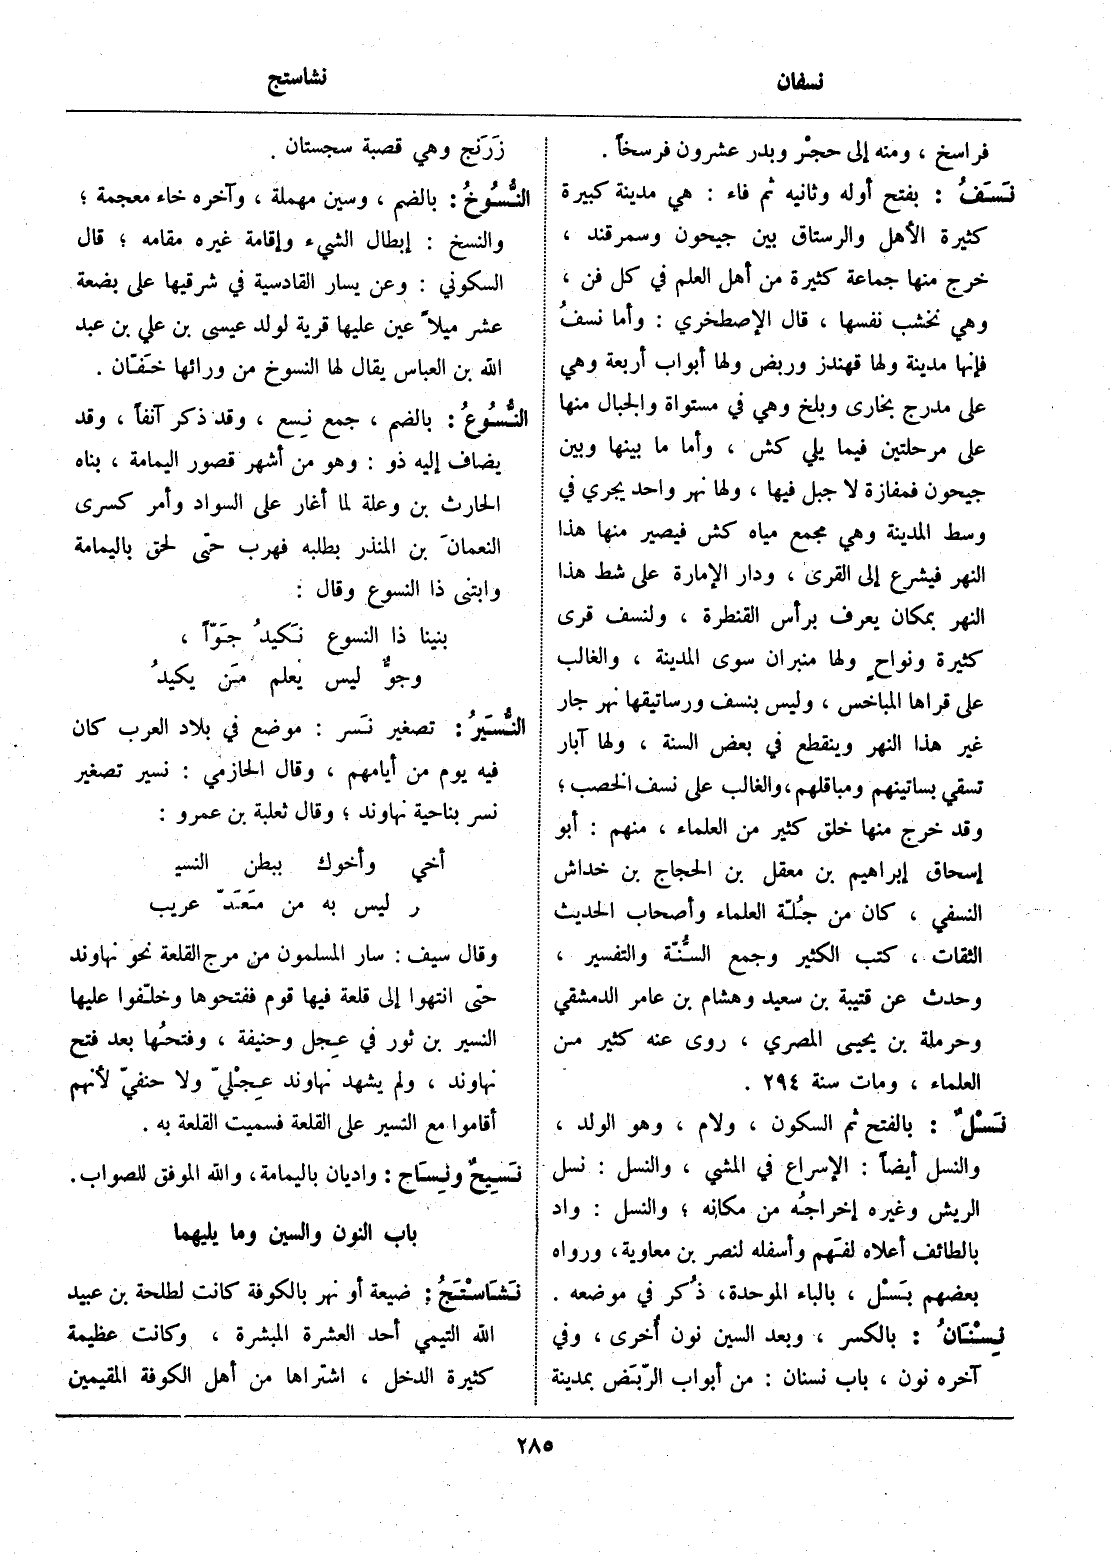 نسفان
نشاستج
فراسخ ، ومنه إلى حجْر وبدر عشرون فرسخاً .
نَسَفُ : بفتح أوله وثانيه ثم فاء : هي مدينة كبيرة
كثيرة الأهل والرستاق بين جيحون وسمرقند ،
خرج منها جماعة كثيرة من أهل العلم في كل فن ،
وهي نخشب نفسها ، قال الإصطخري : وأما نسفُ
فإنها مدينة ولها قهندز وربض ولها أبواب أربعة وهي
على مدرج بخارى وبلخ وهي في مستواة والجبال منها
على مرحلتين فيما يلي كش ، وأما ما بينها وبين
جيحون فمفازة لا جبل فيها ، ولها نهر واحد يجري في
وسط المدينة وهي مجمع مياه كش فيصير منها هذا
النهر فيشرع إلى القرى ، ودار الإمارة على شط هذا
النهر بمكان يعرف برأس القنطرة ، ولنسف قرى
كثيرة ونواحٍ ولها منبران سوى المدينة ، والغالب
على قراها المباخس ، وليس بنسف ورساتيقها نهر جار
غير هذا النهر وينقطع في بعض السنة ، ولها آبار
تسقي بساتينهم ومباقلهم،والغالب على نسف الخصب ؛
وقد خرج منها خلق كثير من العلماء ، منهم : أبو
إسحاق إبراهيم بن معقل بن الحجاج بن خداش
النسفي ، كان من جُلّة العلماء وأصحاب الحديث
الثقات ، كتب الكثير وجمع السُّنّة والتفسير ،
وحدث عن قتيبة بن سعيد وهشام بن عامر الدمشقي
وحرملة بن يحيى المصري ، روى عنه كثير من
العلماء ، ومات سنة ٢٩٤ .
نَسْلٌ : بالفتح ثم السكون ، ولام ، وهو الولد ،
والنسل أيضاً : الإسراع في المشي ، والنسل : نسل
الريش وغيره إخراجُه من مكانه ؛ والنسل : واد
بالطائف أعلاه لفَهم وأسفله لنصر بن معاوية، ورواه
بعضهم بَسْل ، بالباء الموحدة، ذُكر في موضعه .
نِسْنَانُ : بالكسر ، وبعد السين نون أُخرى ، وفي
آخره نون ، باب نسنان : من أبواب الرّبَض بمدينة
زَرَنج وهي قصبة سجستان .
النُّسُوخُ : بالضم ، وسين مهملة ، وآخره خاء معجمة ؛
والنسخ : إبطال الشيء وإقامة غيره مقامه ؛ قال
السكوني : وعن يسار القادسية في شرقيها على بضعة
عشر ميلاً عين عليها قرية لولد عيسى بن علي بن عبد
الله بن العباس يقال لها النسوخ من ورائها خَفّان .
النُّسُوعُ : بالضم ، جمع نِسع ، وقد ذكر آنفاً ، وقد
يضاف إليه ذو : وهو من أشهر قصور اليمامة ، بناه
الحارث بن وعلة لما أغار على السواد وأمر كسرى
النعمانَ بن المنذر بطلبه فهرب حتّى لحق باليمامة
وابتنى ذا النسوع وقال :
بنينا ذا النسوع نَكيدُ جَوّاً ،
وجوٌّ ليس يَعلم مَن يكيدُ
النُّسَيرُ : تصغير نَسر : موضع في بلاد العرب كان
فيه يوم من أيامهم ، وقال الحازمي : نسير تصغير
نسر بناحية نهاوند ؛ وقال ثعلبة بن عمرو :
أخي وأخوك ببطن النسيـ
ـر ليس به من مَعَدّ عريب
وقال سيف : سار المسلمون من مرج القلعة نحو نهاوند
حتّى انتهوا إلى قلعة فيها قوم ففتحوها وخلّفوا عليها
النسير بن ثور في عِجل وحنيفة ، وفتحُها بعد فتح
نهاوند ، ولم يشهد نهاوند عِجْليّ ولا حنفيّ لأنهم
أقاموا مع النسير على القلعة فسميت القلعة به .
نَسِيحٌ ونِسَاح : واديان باليمامة، والله الموفق للصواب.
باب النون والسين وما يليهما
نَشَاسْتَجُ : ضيعة أو نهر بالكوفة كانت لطلحة بن عبيد
الله التيمي أحد العشرة المبشرة ، وكانت عظيمة
كثيرة الدخل ، اشتراها من أهل الكوفة المقيمين
٢٨٥